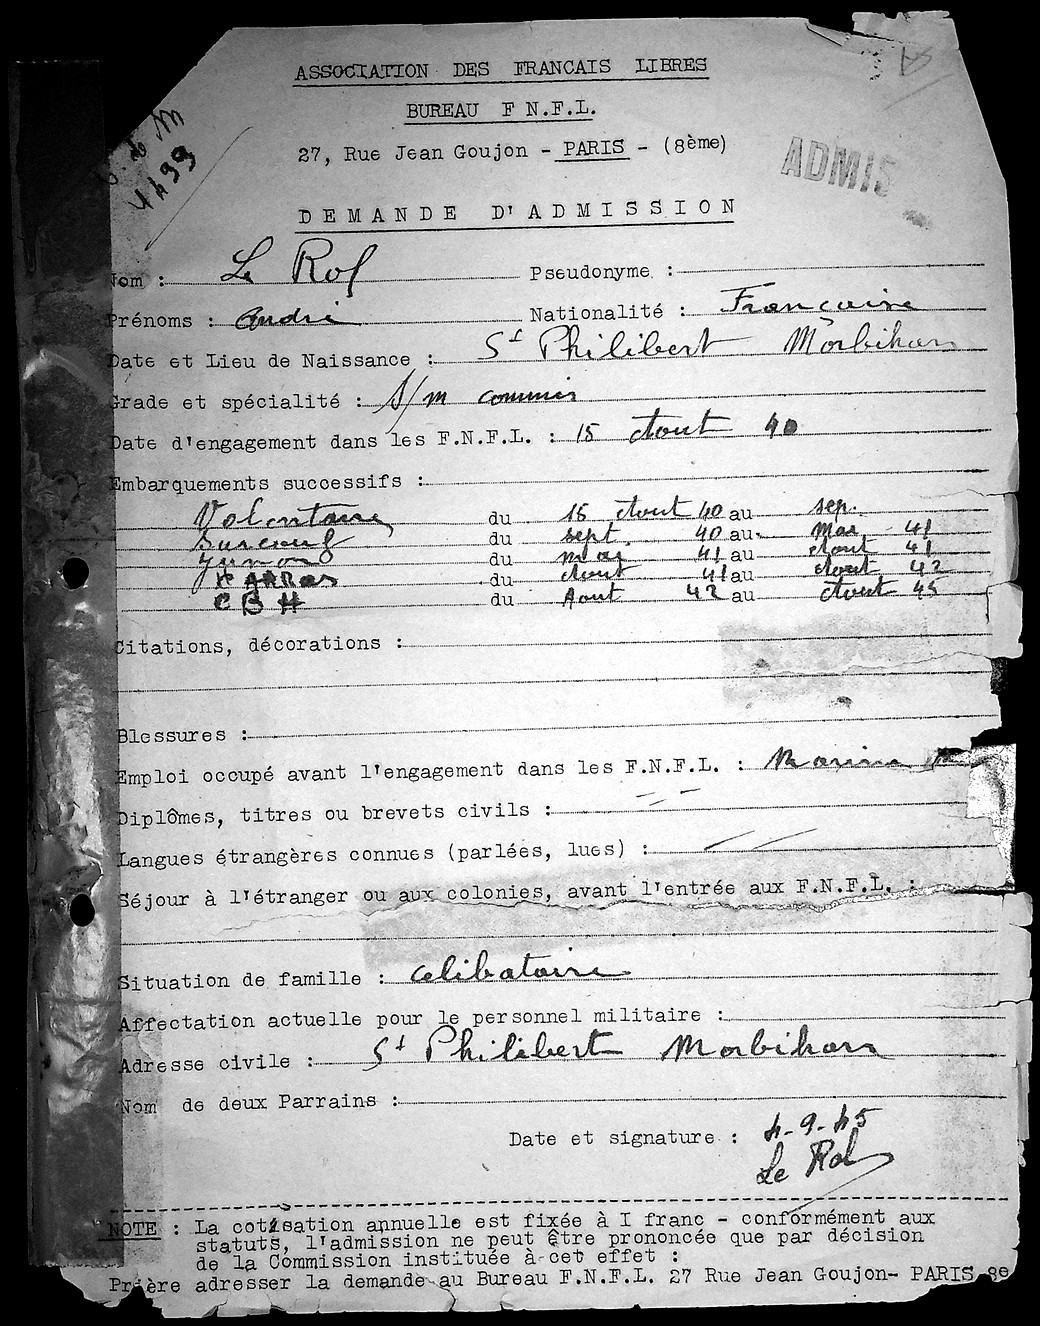 ASSOCIATION DES FRANCAIS LIBRES
BUREAU F N.F.L.
27, Rue Jean Goujon - PARIS - (8ème)
4499
ADMIS
DEMANDE D'ADMISSION
Nom : Le Rol Pseudonyme :
Prénoms : André Nationalité : Française
Date et Lieu de Naissance : St Philibert Morbihan
Grade et spécialité : S/m commis
Date d'engagement dans les F.N.F.L. : 15 Aout 40
Embarquements successifs :
Volontaire du 15 Aout 40 au sep.
Surcouf du sept. 40 au Mas 41
Junon du mas 41 au Aout 41
Arras du Aout 41 au Aout 42
C B H du Aout 42 au Aout 45
Citations, décorations :
Blessures :
Emploi occupé avant l'engagement dans les F.N.F.L. : Marine
Diplômes, titres ou brevets civils :
Langues étrangères connues (parlées, lues) :
Séjour à l'étranger ou aux colonies, avant l'entrée aux F.N.F.L. :
Situation de famille : celibataire
Affectation actuelle pour le personnel militaire :
Adresse civile : St Philibert Morbihan
Nom de deux Parrains :
Date et signature : 4-9-45
Le Rol
NOTE : La cotisation annuelle est fixée à I franc - conformément aux
statuts, l'admission ne peut être prononcée que par décision
de la Commission instituée à cet effet :
Prière adresser la demande au Bureau F.N.F.L. 27 Rue Jean Goujon- PARIS 8e